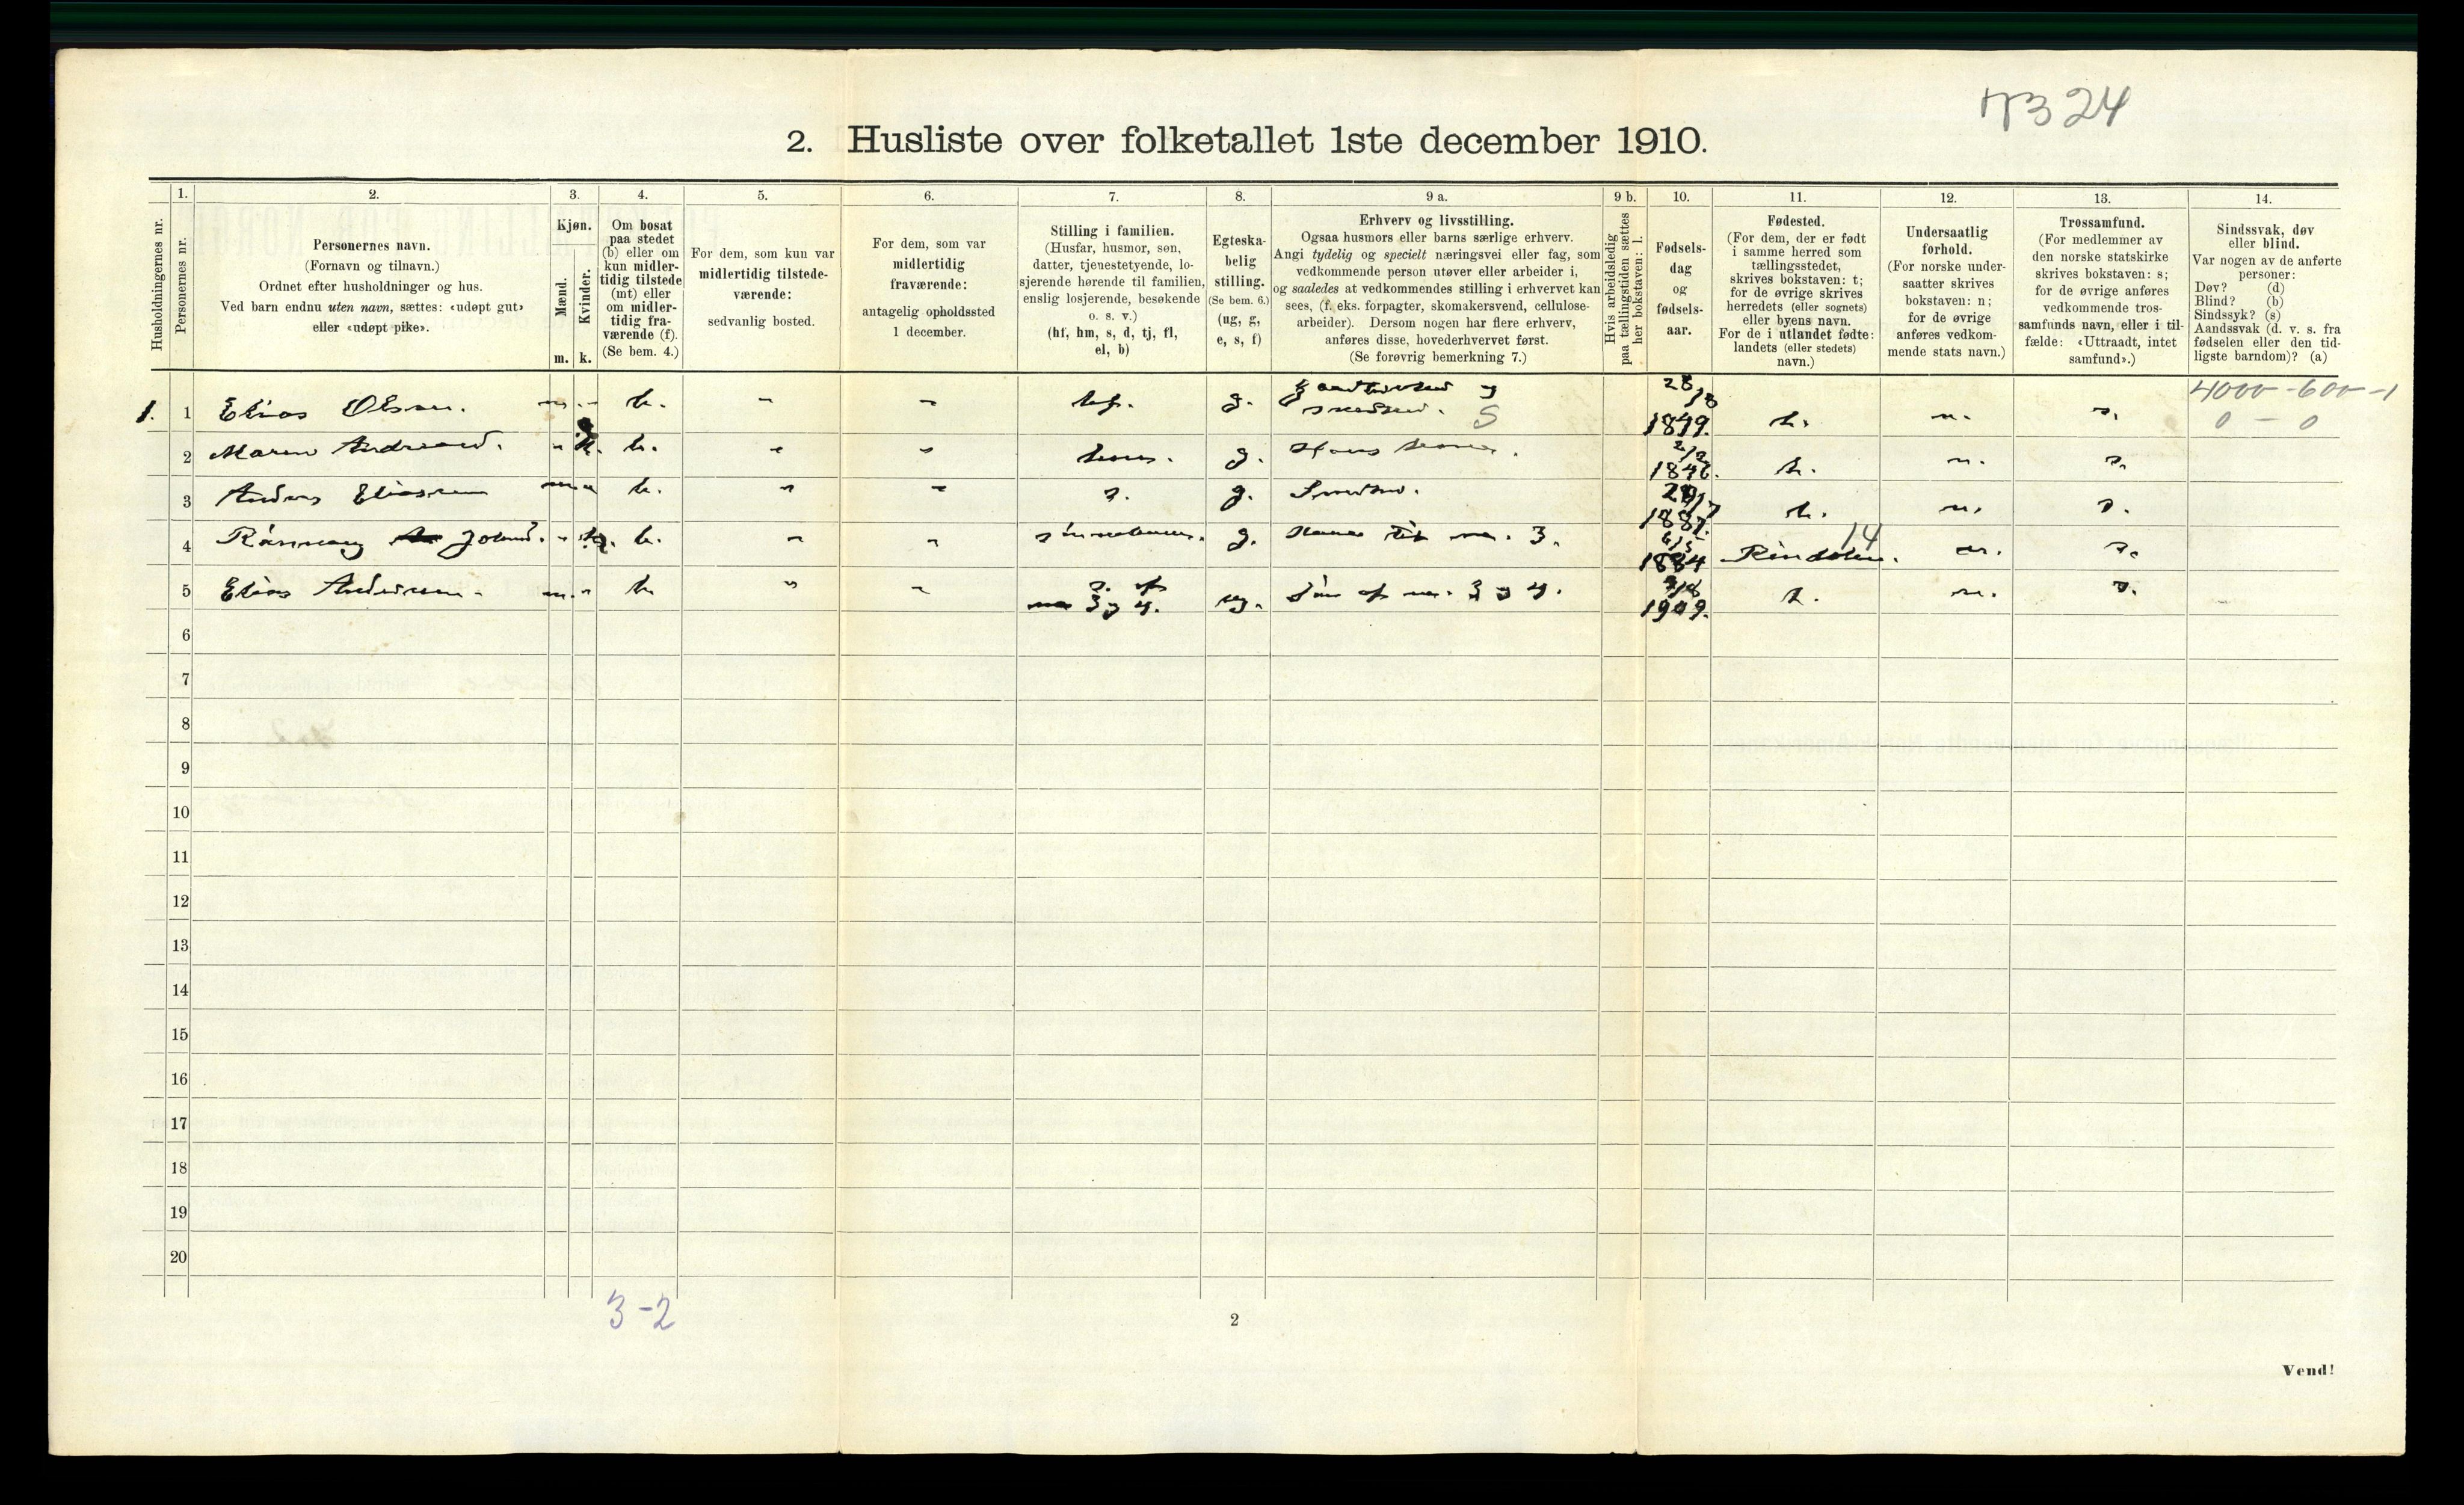 2. Husliste over folketallet 1ste december 1910.
Husholdningernes nr.
1.
Personernes nr.
2.
Personernes navn.
(Fornavn og tilnavn.)
Ordnet efter husholdninger og hus.
Ved barn endnu uten navn, sættes: «udøpt gut»
eller «udøpt pike».
3.
Kjøn.
Mænd.
Kvinder.
m. k.
4.
Om bosat
paa stedet
(b) eller om
kun midler-
tidig tilstede
(mt) eller
om midler-
tidig fra-
værende (f).
(Se bem. 4.)
5.
For dem, som kun var
midlertidig tilstede-
værende:
sedvanlig bosted.
6.
For dem, som var
midlertidig
fraværende:
antagelig opholdssted
1 december.
7.
Stilling i familien.
(Husfar, husmor, søn,
datter, tjenestetyende, lo-
sjerende hørende til familien,
enslig losjerende, besøkende
o. s. v.)
(hf, hm, s, d, tj, fl,
el, b)
8.
Egteska-
belig
stilling.
(Se bem. 6.)
(ug, g,
e, s, f)
9 a.
Erhverv og livsstilling.
Ogsaa husmors eller barns særlige erhverv.
Angi tydelig og specielt næringsvei eller fag, som
vedkommende person utøver eller arbeider i,
og saaledes at vedkommendes stilling i erhvervet kan
sees, (f. eks. forpagter, skomakersvend, cellulose-
arbeider). Dersom nogen har flere erhverv,
anføres disse, hovederhvervet først.
(Se forøvrig bemerkning 7.)
9 b.
Hvis arbeidsledig
paa tællingstiden sættes
her bokstaven: l.
10.
Fødsels-
dag
og
fødsels-
aar.
11.
Fødested.
(For dem, der er født
i samme herred som
tællingsstedet,
skrives bokstaven: t;
for de øvrige skrives
herredets (eller sognets)
eller byens navn.
For de i utlandet fødte:
landets (eller stedets)
navn.)
12.
Undersaatlig
forhold.
(For norske under-
saatter skrives
bokstaven: n;
for de øvrige
anføres vedkom-
mende stats navn.)
13.
Trossamfund.
(For medlemmer av
den norske statskirke
skrives bokstaven: s;
for de øvrige anføres
vedkommende tros-
samfunds navn, eller i til-
fælde: «Uttraadt, intet
samfund».)
14.
Sindssvak, døv
eller blind.
Var nogen av de anførte
personer:
Døv? (d)
Blind? (b)
Sindssyk? (s)
Aandssvak (d. v. s. fra
fødselen eller den tid-
ligste barndom)? (a)
4000-600-1
0 - 0
1. 1 Elias Olsen. m. - b. - - hf. g. S 1849. t. n. s.
2 Maren - k. b. - - hm. g. Hans kone. t. n. s.
3 Anders Eliassen m - b. - - s. g. 1887. t. n. s.
4 - k. b. - - g. Kone til nr. 3. 1884 Rindalen. 14 n. s.
5 Elias Andersen. m. - b - - s. af
3 og 4. ug. Søn af nr. 3 og 4. 1909. t. n. s.
6
7
8
9
10
11
12
13
14
15
16
17
18
19
20
3-2
2
Vend!